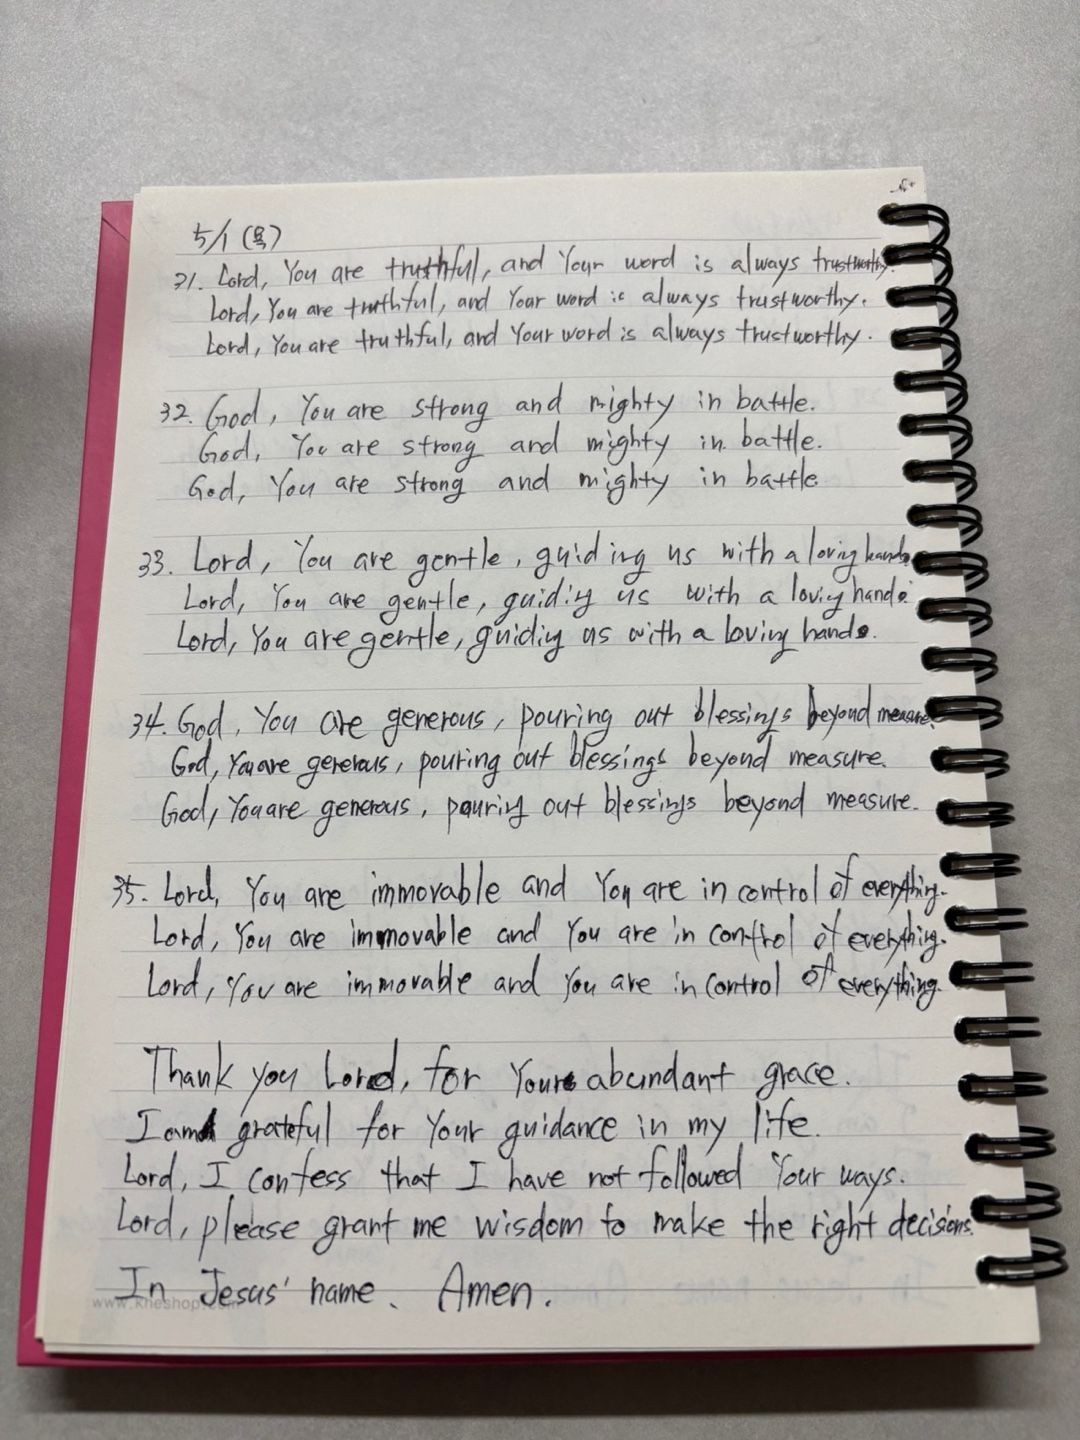 5/1 (목)
31. Lord, You are truthful, and Your word is always trustworthy.
Lord, You are truthful, and Your word is always trustworthy.
Lord, You are truthful, and Your word is always trustworthy.
32. God, You are strong and mighty in battle.
God, You are strong and mighty in battle.
God, You are strong and mighty in battle
33. Lord, You are gentle, guiding us with a loving hands.
Lord, You are gentle, guidig us with a lovig hands.
Lord, You are gentle, guidig us with a loving hands.
34. God, You are generous, pouring out blessings beyond measure.
God, You are generous, pouring out blessings beyond measure.
God, You are generous, pouring out blessings beyond measure.
35. Lord, You are immovable and You are in control of everything.
Lord, You are immovable and You are in control of everything.
Lord, You are immovable and You are in control of everything.
Thank you Lord, for Your abundant grace.
I am grateful for Your guidance in my life.
Lord, I confess that I have not followed Your ways.
Lord, please grant me wisdom to make the right decisions.
In Jesus' name. Amen.